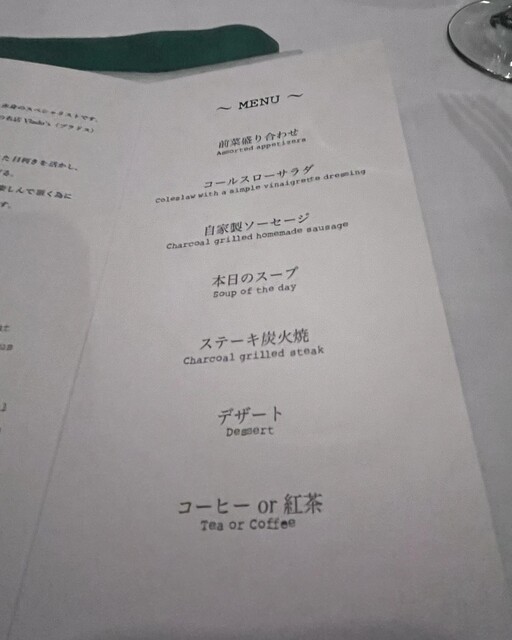 身のスペシャリストです。
の名店 Vlado's（ヴラドス）
た目利きを活かし、
る。
楽しんで頂く為に
す。
～ MENU ～
前菜盛り合わせ
Assorted appetizers
コールスローサラダ
Coleslaw with a simple vinaigrette dressing
自家製ソーセージ
Charcoal grilled homemade sausage
本日のスープ
Soup of the day
ステーキ炭火焼
Charcoal grilled steak
デザート
Dessert
コーヒー or 紅茶
Tea or Coffee